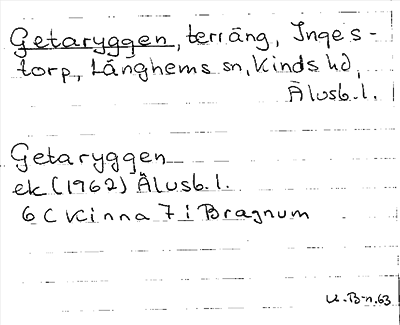 Getaryggen, terräng, Inges-
torp, Långhems sn, Kinds hd,
Älvsb. l.
Getaryggen
ek (1962) Älvsb. l.
6 C Kinna 7 i Bragnum
U. B-n. 63